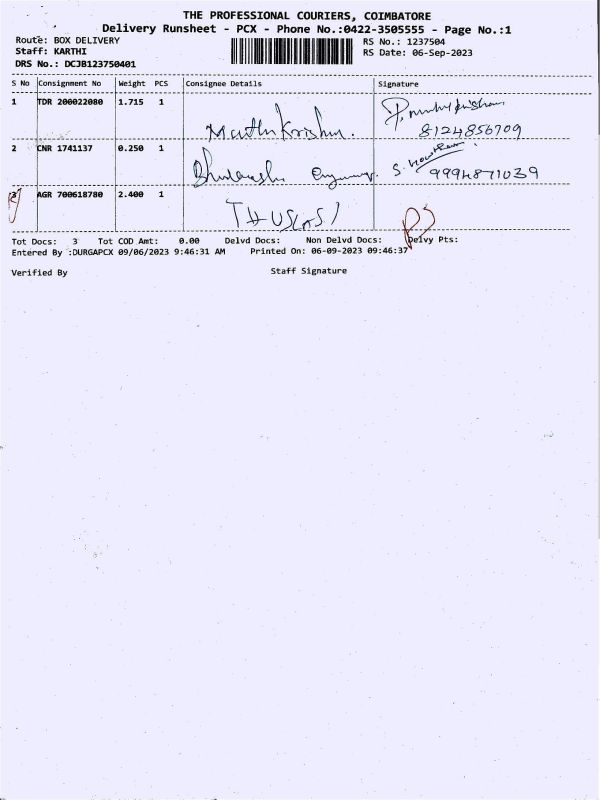 THE PROFESSIONAL COURIERS, COIMBATORE
Delivery Runsheet - PCX - Phone No.:0422-3505555 - Page No.:1
Route: BOX DELIVERY
Staff: KARTHI
DRS No.: DCJB123750401
RS No.: 1237504
RS Date: 06-Sep-2023
S No Consignment No Weight PCS Consignee Details Signature
1 TDR 200022080 1.715 1
8124856709
2 CNR 1741137 0.250 1
9994871039
3 AGR 700618780 2.400 1
Tot Docs: 3 Tot COD Amt: 0.00 Delvd Docs: Non Delvd Docs: Delvy Pts:
Entered By :DURGAPCX 09/06/2023 9:46:31 AM Printed On: 06-09-2023 09:46:37
Verified By Staff Signature